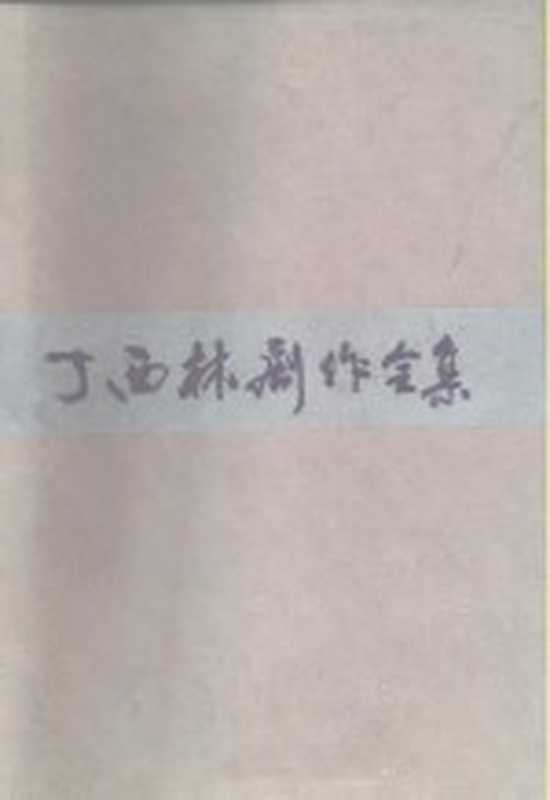 丁西林剧作全集